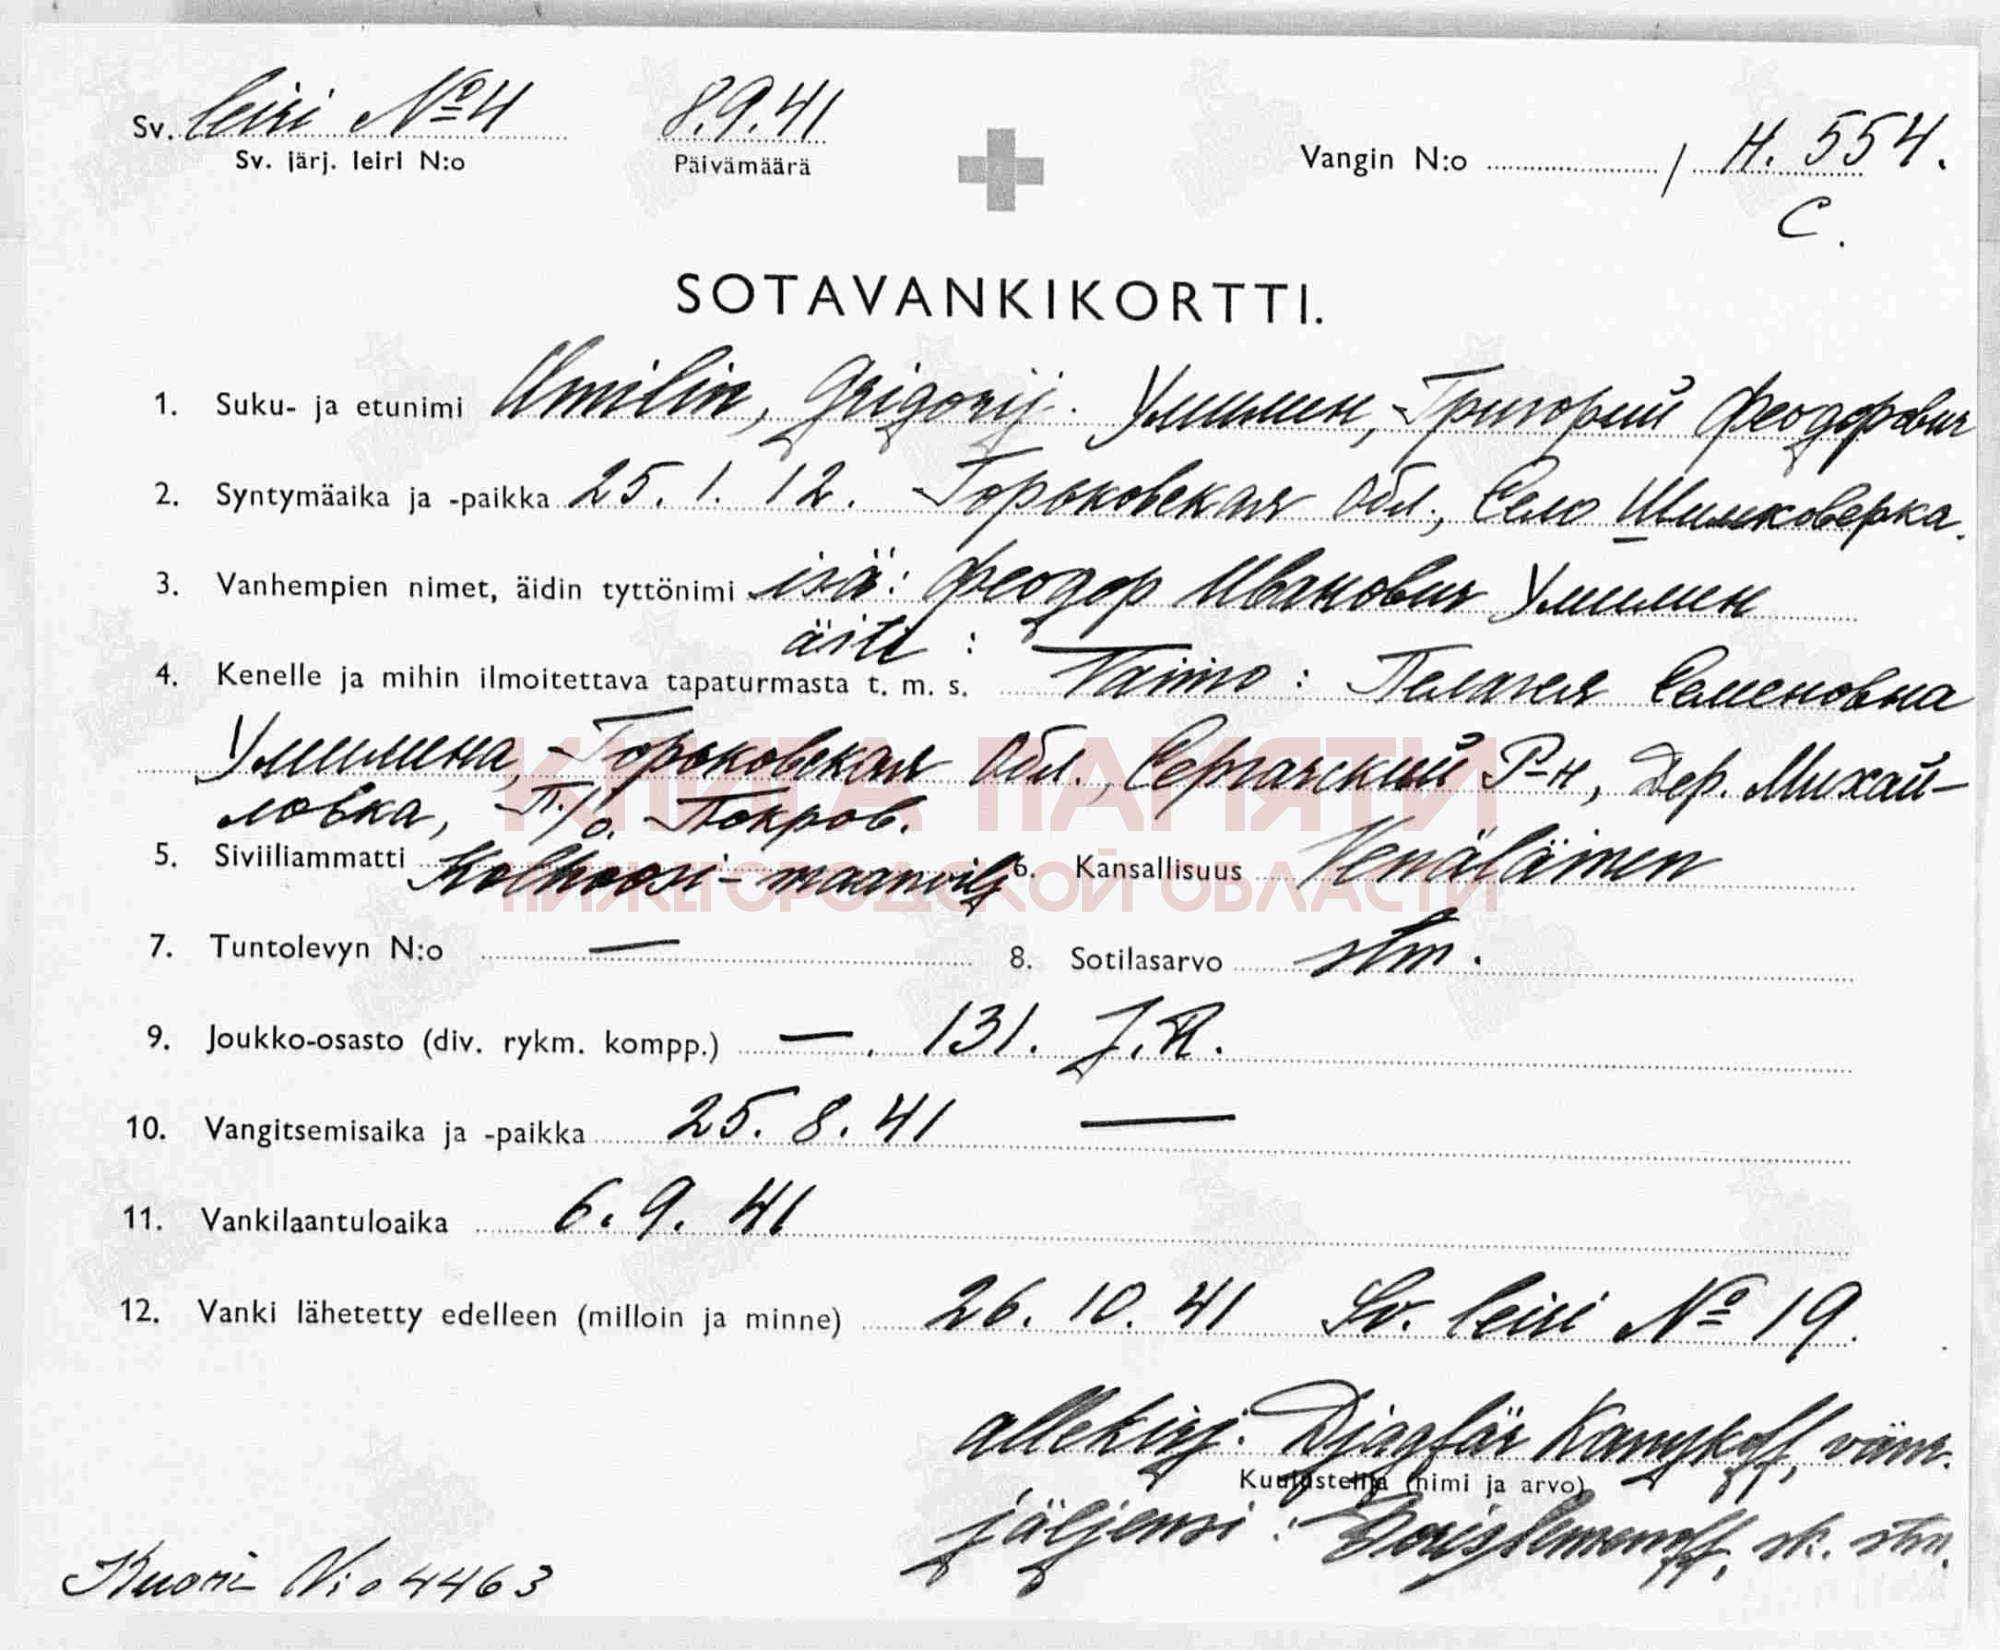 Sv. leiri № 4 8.9.41 Vangin N:o / H. 554.
Sv. järj. leiri N:o Päivämäärä
C.
SOTAVANKIKORTTI.
1. Suku- ja etunimi Umilin, Grigorij. Умилин, Григорий Феодорович
2. Syntymäaika ja -paikka 25. 1. 12. Горьковская Обл., Село Шилковерка.
3. Vanhempien nimet, äidin tyttönimi isä: Феодор Иванович Умилин
äiti : —
4. Kenelle ja mihin ilmoitettava tapaturmasta t. m. s. Vaimo: Пелагея Семеновна
Умилина, Горьковская Обл., Сергачский Р-н, Дер. Михай-
ловка, П/о. Покров.
5. Siviiliammatti Kolhoosi-maanvilj 6. Kansallisuus Venäläinen
7. Tuntolevyn N:o — 8. Sotilasarvo stm.
9. Joukko-osasto (div. rykm. kompp.) —. 131. J.R.
10. Vangitsemisaika ja -paikka 25. 8. 41 —
11. Vankilaantuloaika 6. 9. 41
12. Vanki lähetetty edelleen (milloin ja minne) 26. 10. 41 Sv. leiri № 19.
allekirj: Djagfär vänr.
Kuulustelija (nimi ja arvo)
jäljensi: sk. stm.
Kuori N:o 4463
КНИГА ПАМЯТИ
НИЖЕГОРОДСКОЙ ОБЛАСТИ